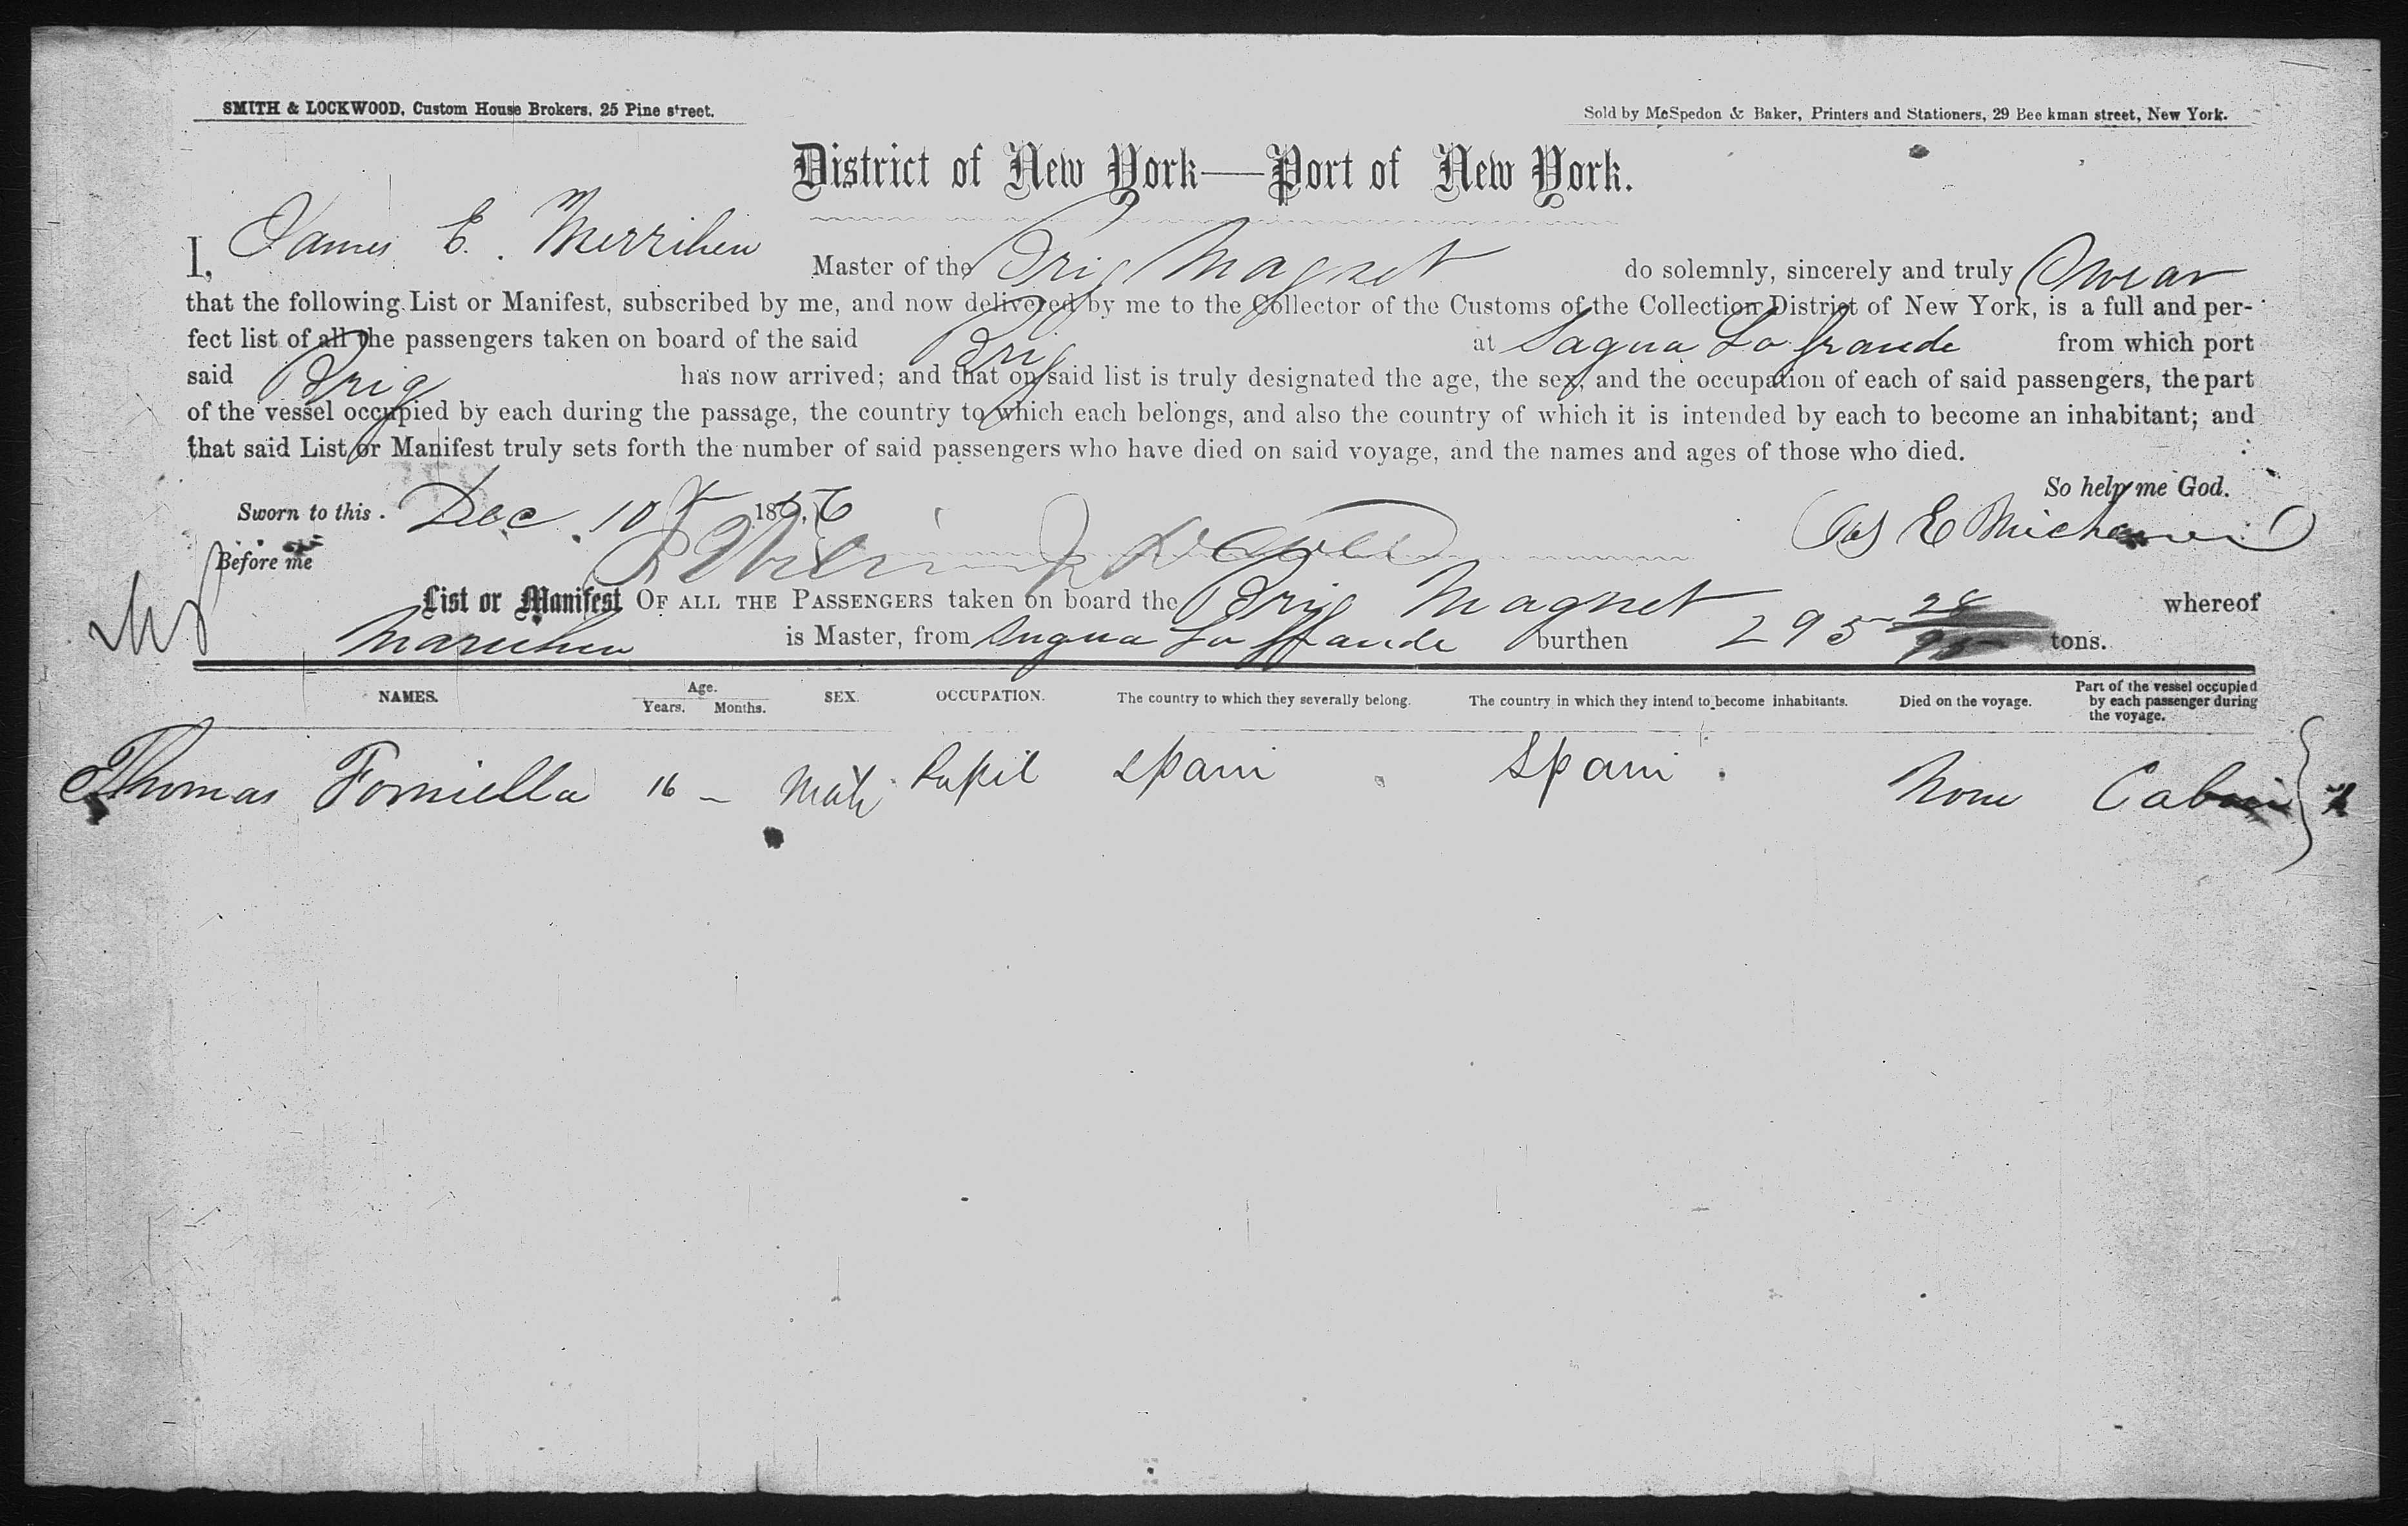 SMITH & LOCKWOOD, Custom House Brokers, 25 Pine street.
Sold by McSpedon & Baker, Printers and Stationers, 29 Beekman street, New York.
District of New York—Port of New York.
I, James E. Merrihew Master of the Brig Magnet do solemnly, sincerely and truly Swear
that the following List or Manifest, subscribed by me, and now delivered by me to the Collector of the Customs of the Collection District of New York, is a full and per-
fect list of all the passengers taken on board of the said Brig at Sagua La Grande from which port
said Brig has now arrived; and that on said list is truly designated the age, the sex, and the occupation of each of said passengers, the part
of the vessel occupied by each during the passage, the country to which each belongs, and also the country of which it is intended by each to become an inhabitant; and
that said List or Manifest truly sets forth the number of said passengers who have died on said voyage, and the names and ages of those who died.
So help me God.
Sworn to this Dec. 10th 1856
Jas E
Before me
List or Manifest OF ALL THE PASSENGERS taken on board the Brig Magnet whereof
is Master, from Sagua La Grande burthen 295 28/95 tons.
NAMES. Age. Years. Months. SEX. OCCUPATION. The country to which they severally belong. The country in which they intend to become inhabitants. Died on the voyage. Part of the vessel occupied by each passenger during the voyage.
Thomas Forniella 16 – Male Pupil Spain Spain None Cabin